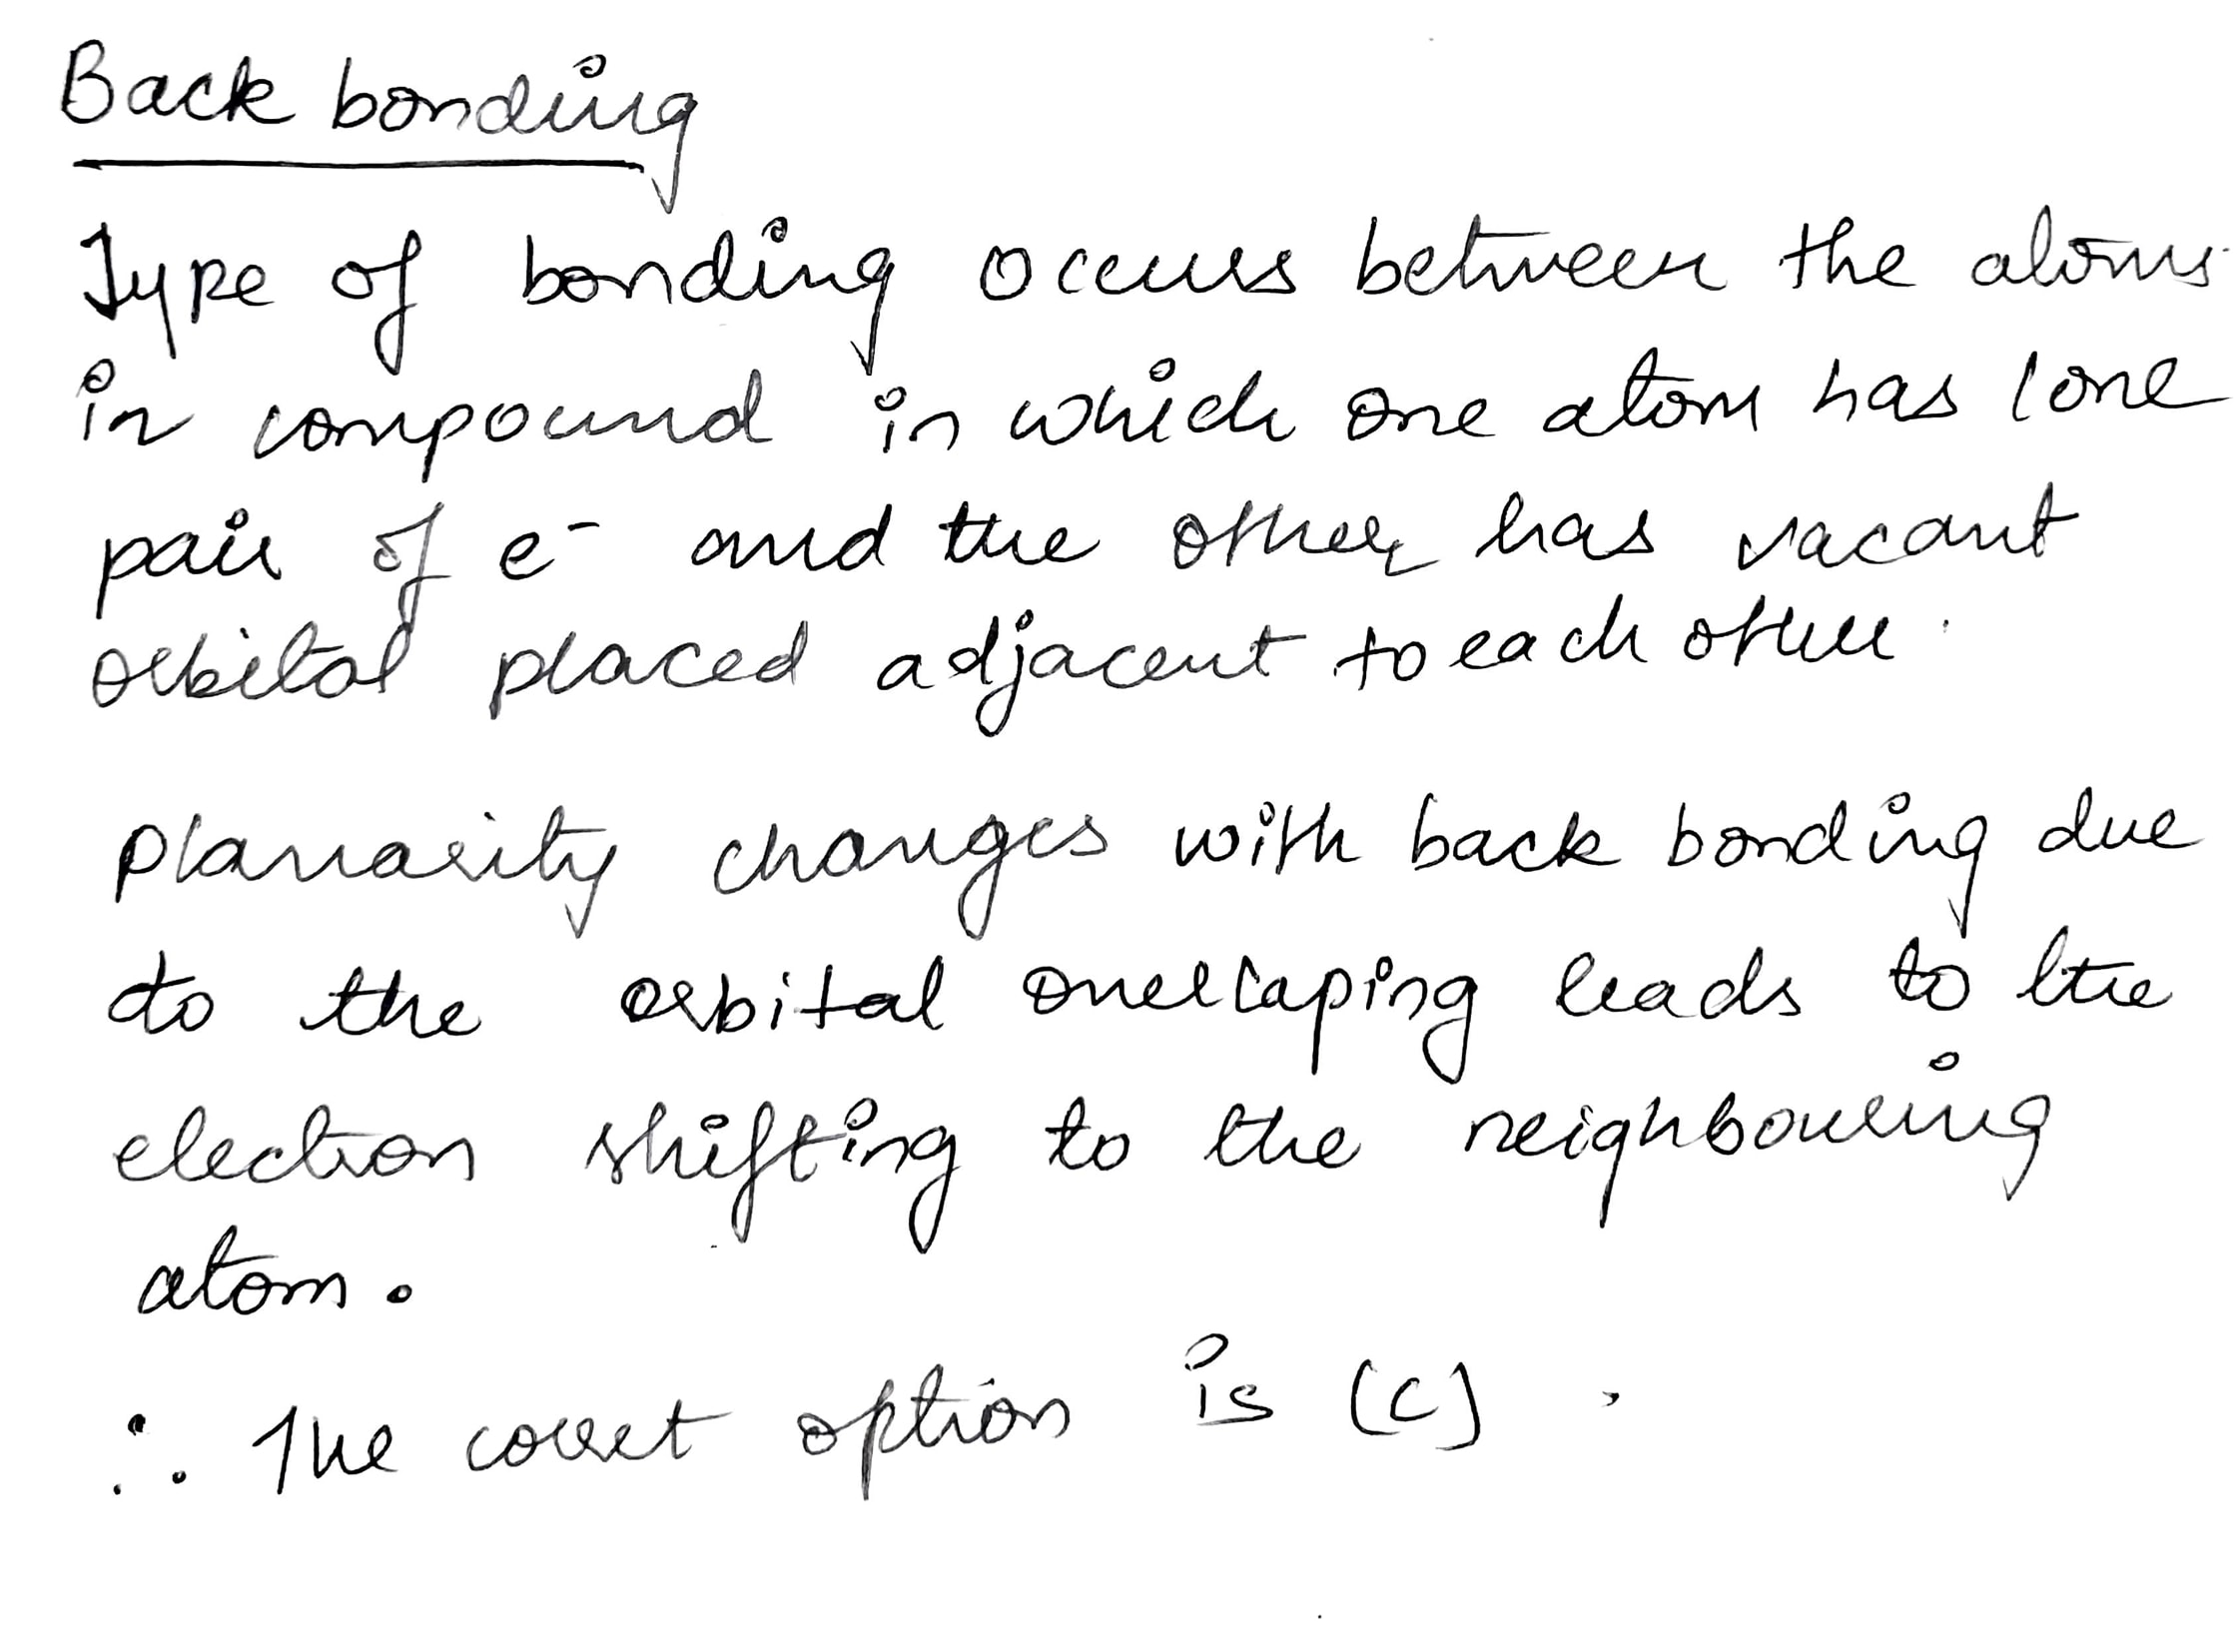 Back bonding
Type of bonding occurs between the atoms
in compound in which one atom has lone
pair of e⁻ and the other has vacant
orbital placed adjacent to each other.
planarity changes with back bonding due
to the orbital overlaping leads to the
electron shifting to the neighbouring
atom.
∴ The corect option is (c).